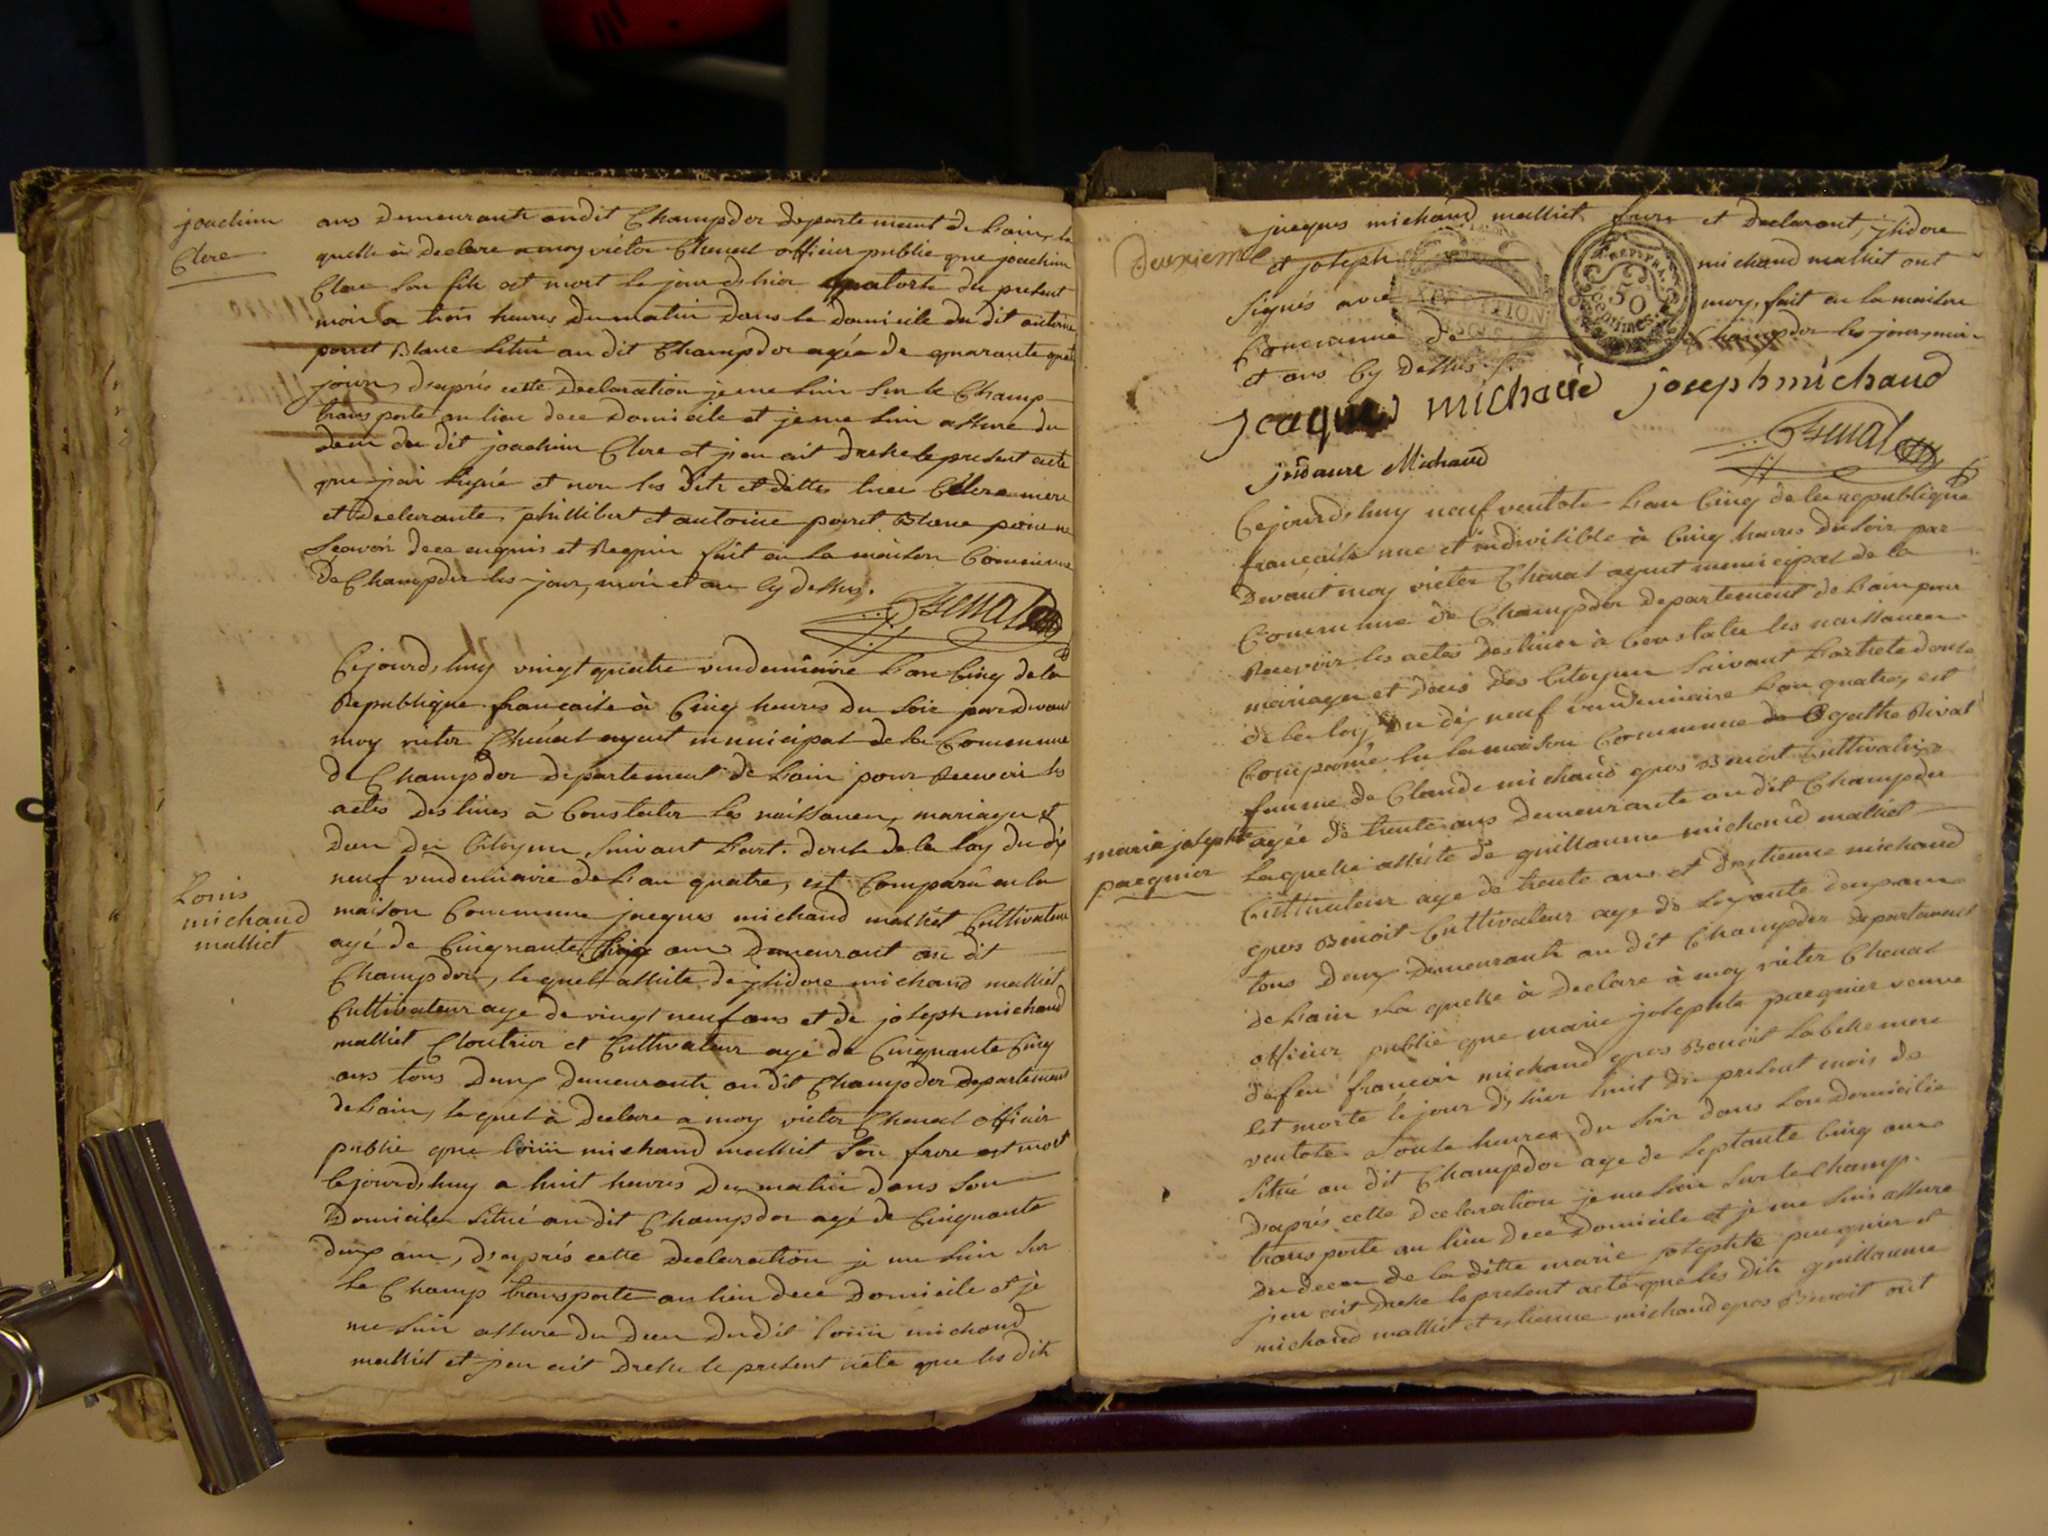 joachim
Clere
ans demeurants audit Champdor departement de Lain, la
quelle à declare a moy victor Chenal officier public que joachim
Clere son fils est mort le jour dhier quatorze du present
mois a trois heures du matin dans le domicile du dit antoine
poncet Blanc situé au dit Champdor agée de quarante quatre
jours, d'après cette declaration je me suis sur le Champ
transporté au lieu dece Domicile et je me suis assure du
deces du dit joachim Clere et j'en ait dresse le present acte
que j'ai signé et non les dits et dittes Clere mere
et declarante, phillibert et antoine poncet Blanc pour ne
scavoir dece enquis et Requis fait en la maison Commune
de Champdor les jour, mois et an cy dessus.
Chenal
Louis
michaud
malliet
Cejourdhuy vingt quatre vendemiaire Lan Cinq de la
Republique francaise à Cinq heures du soir pardevant
moy victor Chenal agent municipal de la Commune
de Champdor departement de Lain pour Recevoir les
actes destines à Constater les naissances, mariages et
deces des Citoyens, suivant Lart. douze de la loy du dix
neuf vendemiaire de Lan quatre, est Comparû en la
maison Commune jacques michaud malliet Cultivateur
agé de Cinquante Cinq ans demeurant au dit
Champdor, lequel assisté de isidore michaud malliet
Cultivateur age de vingt neuf ans et de joseph michaud
malliet Cloutrier et Cultivateur agé de Cinquante Cinq
ans tous deux demeurants au dit Champdor departement
de Lain, lequel à declare a moy victor Chenal officier
public que Louis michaud malliet son frere est mort
Cejourdhuy a huit heures du matin dans son
Domicile situé au dit Champdor agé de Cinquante
deux ans, d'après cette declaration je me suis sur
le Champ transporté au lieu dece Domicile et je
me suis assure du deces dudit Louis michaud
malliet et j'en ait dresse le present acte que les dits
Deuxieme
jacques michaud malliet frere et declarant, isidore
et joseph michaud malliet ont
signés avec moy, fait en la maison
Commune de Champdor les jour, mois
et ans cy dessus.
REP. FRA.
50
Centimes
jacques michaud joseph michaud
Chenal
Michaud
Cejourdhuy neuf ventose Lan Cinq de la republique
francaise une et indivisible à Cinq heures du soir par
devant moy victor Chenal agent municipal de la
Commune de Champdor departement de Lain pour
Recevoir les actes destines à Constater les naissances
mariages et deces des Citoyens suivant Larticle douze
de la loy du dix neuf vendemiaire Lan quatre, est
Comparüe en la maison Commune agathe Rivat
femme de Claude michaud gros Benoit Cultivatrice
marie josephte
paegnier
agée de trente ans demeurante au dit Champdor
laquelle assisté de guillaume michaud malliet
Cultivateur age de trente ans et d'estienne michaud
gros Benoit Cultivateur age de soixante deux ans
tous deux demeurants au dit Champdor departement
de Lain laquelle à declare à moy victor Chenal
officier public que marie josephte paegnier veuve
de feu francois michaud gros Benoit sa belle mere
est morte le jour d'hier huit du present mois de
ventose à onze heures du soir dans son Domicile
situé au dit Champdor age de septante Cinq ans
d'après cette declaration je me suis sur le champ
transporté au lieu dece Domicile et je me suis assure
du deces de la ditte marie josephte paegnier et
j'en ait dresse le present acte que les dits guillaume
michaud malliet et estienne michaud gros Benoit ont